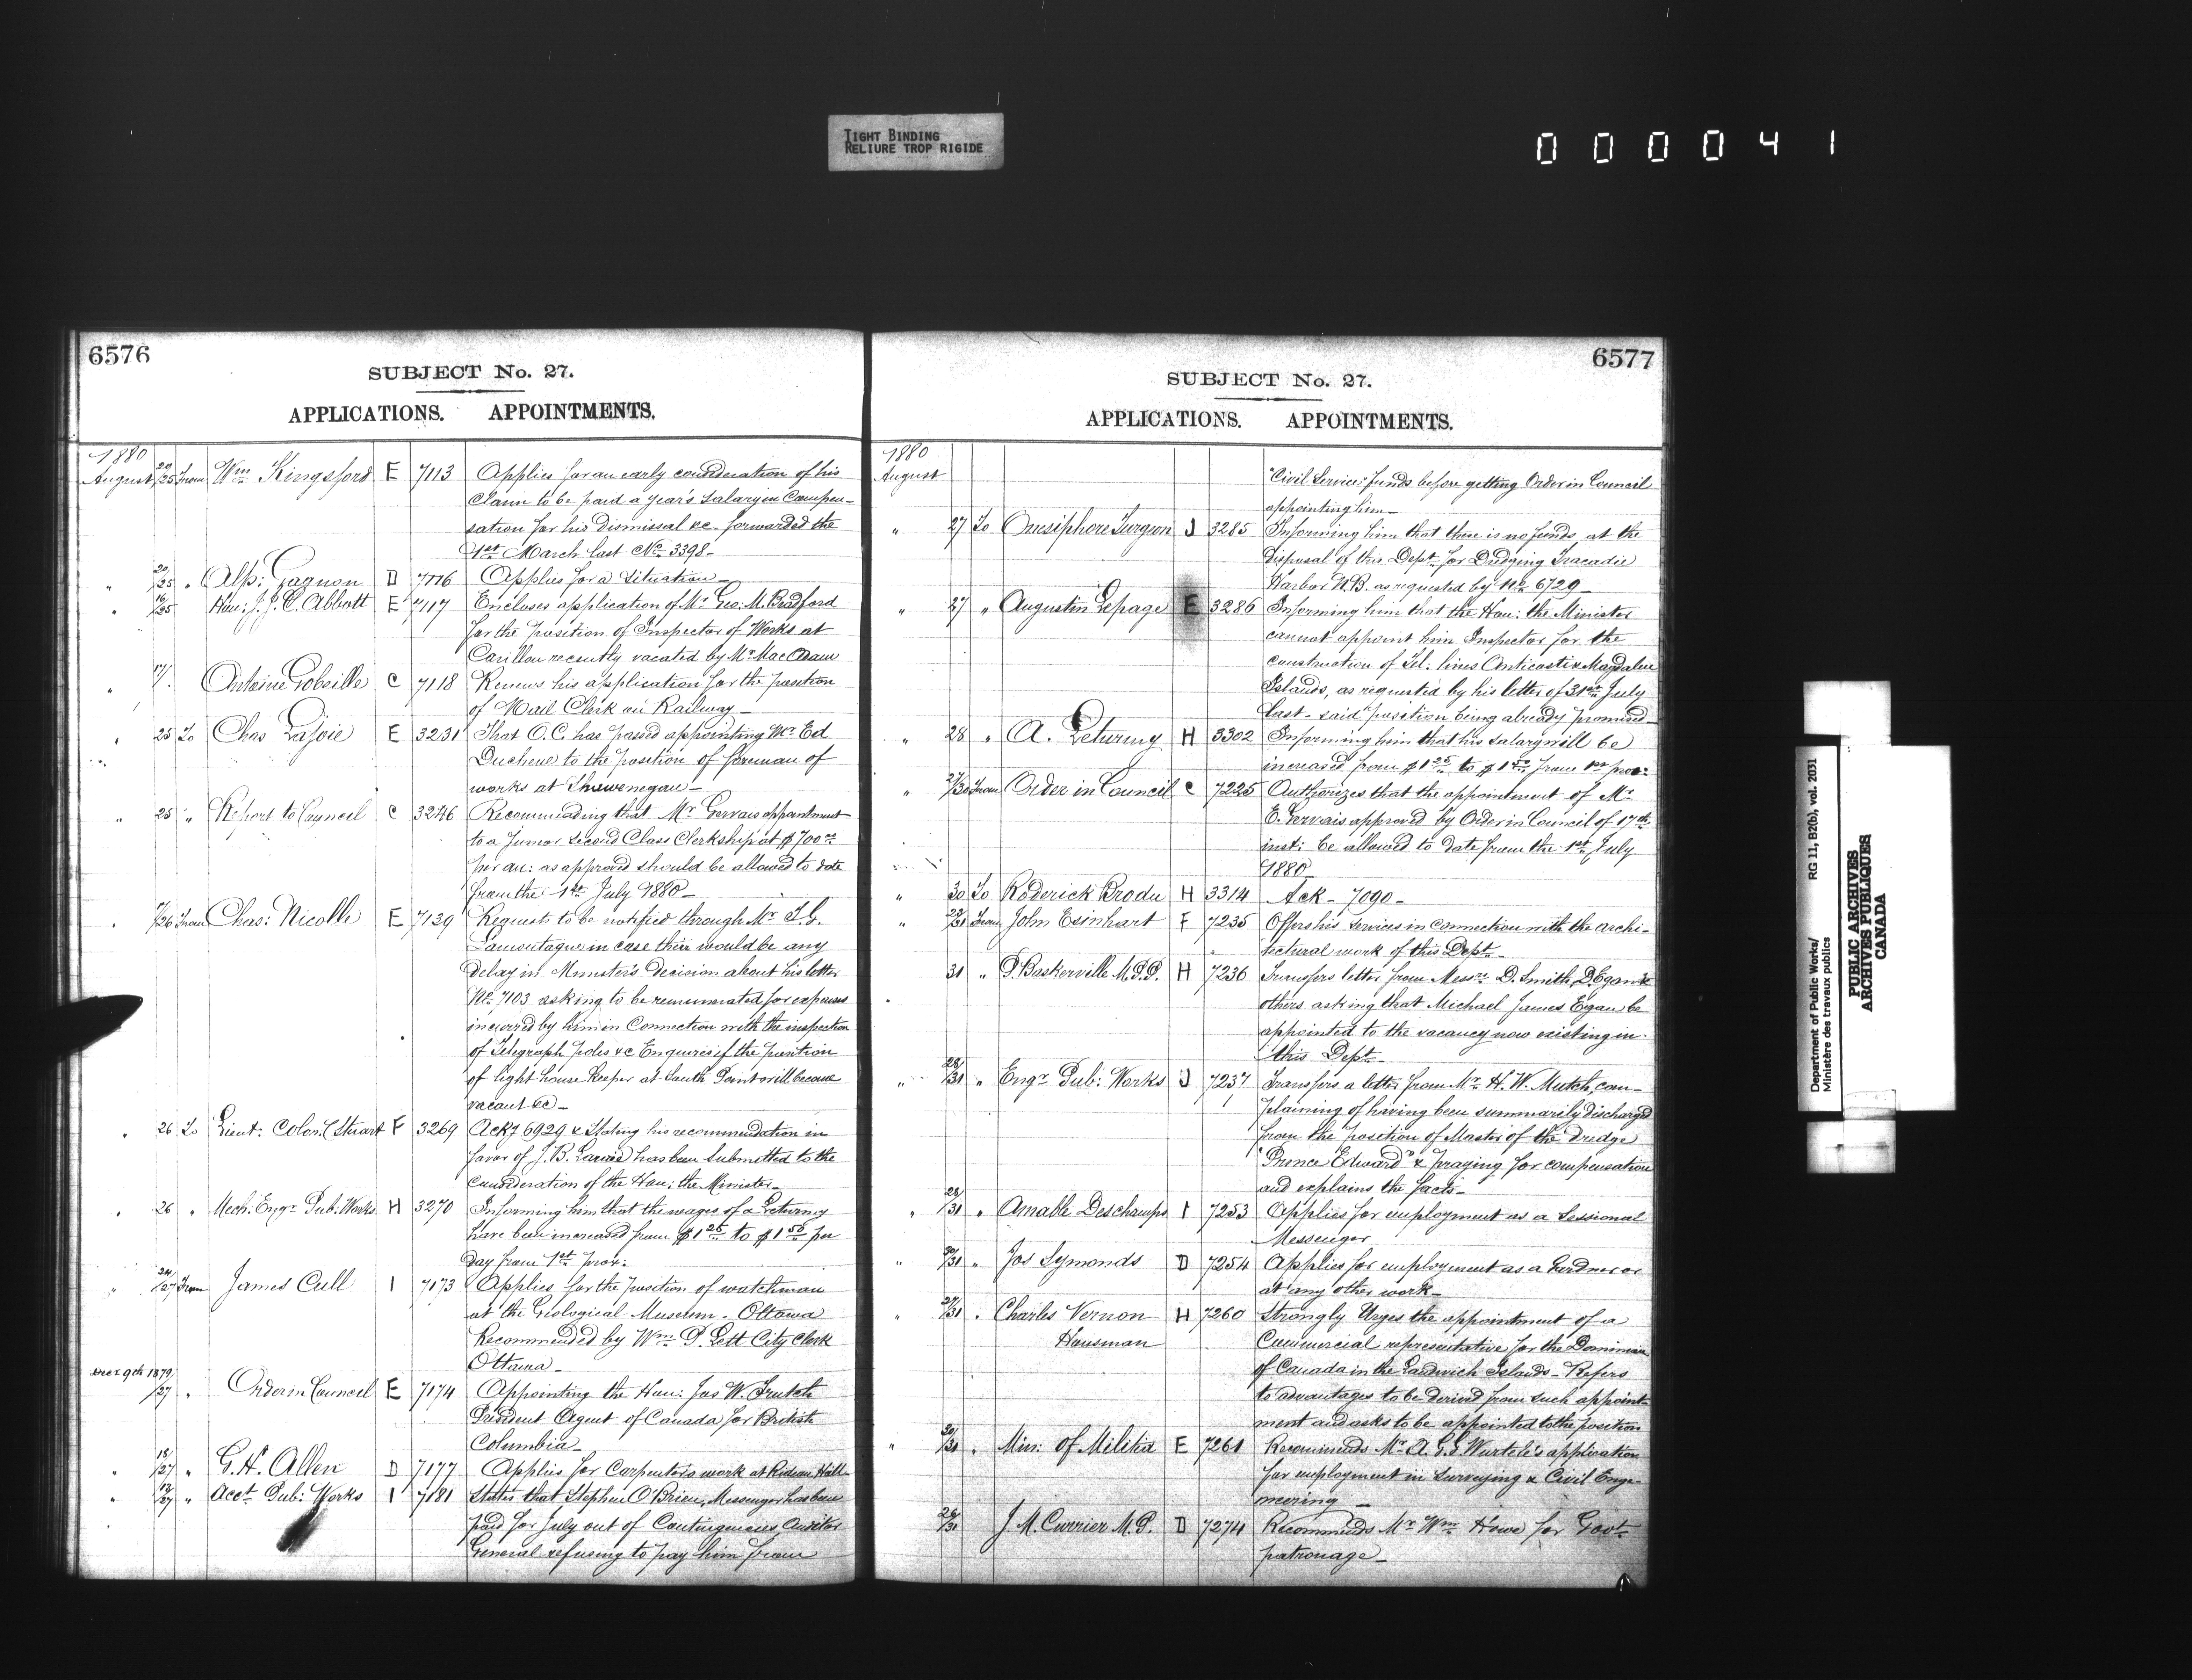 TIGHT BINDING
RELIURE TROP RIGIDE
000041
6576
SUBJECT No. 27.
APPLICATIONS. APPOINTMENTS.
1880
August 20/25 From Wm Kingsford E 7113 Applies for an early consideration of his
claim to be paid a year's salary in Compen-
sation for his dismissal &c. forwarded the
1st March last No 3398-
" 20/25 " Alp: Gagnon D 7116 Applies for a situation-
" 16/25 Hon: J. J. C. Abbott E 7117 Encloses application of Mr Geo: M. Bradford
for the position of Inspector of Works at
Carillon recently vacated by Mr MacAdam
" 17/ Antoine Gobeille C 7118 Renews his application for the position
of Mail Clerk on Railway-
" 25 To Chas Lajoie E 3231 That O.C. has passed appointing Mr Ed
Duchene to the position of foreman of
works at Shawenegan-
" 25 " Report to Council C 3246 Recommending that Mr Gervais appointment
to a Junior Second Class Clerkship at $700
per an: as approved should be allowed to date
from the 1st July 1880-
" /26 From Chas: Nicolle E 7139 Request to be notified through Mr
Lamontagne in case there would be any
delay in Minister's decision about his letter
No 7103 asking to be remunerated for expenses
incurred by him in Connection with the inspection
of Telegraph poles &c Enquires if the position
of light house Keeper at South Point will become
vacant &c-
" 26 To Lieut: Colonel Stuart F 3269 Ackg 6929 & Stating his recommendation in
favor of J. B. has been submitted to the
consideration of the Hon: the Minister-
" 26 " Mech: Engr Pub: Works H 3270 Informing him that the wages of a Leturney
have been increased from $1 25 to $1 50 per
day from 1st prox:
" 24/27 From James Cull I 7173 Applies for the position of watchman
at the Geological Museum - Ottawa
Recommended by Wm P. Lett City Clerk
Ottawa-
Decr 9th 1879/27 " Order in Council E 7174 Appointing the Hon: Jos W. Trutch
President Agent of Canada for British
Columbia-
" 18/27 " G. H. Allen D 7177 Applies for Carpenter's work at Rideau Hall-
" 12/27 " Acct Pub: Works I 7181 States that Stephen O'Brien, Messenger has been
paid for July out of Contingencies, Auditor
General refusing to pay him from
6577
SUBJECT No. 27.
APPLICATIONS. APPOINTMENTS.
1880
August "Civil Service" funds before getting Order in Council
appointing him-
" 27 To Onesiphore Turgeon J 3285 Informing him that there is no funds at the
disposal of this Dept for Dredging Tracadie
Harbor N.B. as requested by No 6729-
" 27 " Augustin Lepage E 3286 Informing him that the Hon: the Minister
cannot appoint him Inspector for the
construction of Tel: lines Anticosti & Magdalen
Islands, as requested by his letter of 31st July
last - said position being already promised-
" 28 " A. Leturney H 3302 Informing him that his salary will be
increased from $1 25 to $1 50 from 1st prox:
" 27/30 From Order in Council C 7225 Authorizes that the appointment of Mr
E. Gervais approved by Order in Council of 17th
inst: be allowed to date from the 1st July
1880
" 30 To Roderick Brodu H 3314 Ack - 7090-
" 29/31 From John Esinhart F 7235 Offers his services in connection with the archi-
tectural work of this Dept-
31 " P. Baskerville M.P.P. H 7236 Transfers letter from Messrs D. Smith, D. Egan &
others asking that Michael James Egan be
appointed to the vacancy now existing in
this Dept-
" 28/31 " Engr Pub: Works J 7237 Transfers a letter from Mr H. W. Mutch, com-
plaining of having been summarily discharged
from the position of Master of the dredge
"Prince Edward" & praying for compensation
and explains the facts-
" 28/31 " Amable Deschamps I 7253 Applies for employment as a Sessional
Messenger
" 30/31 " Jos Symonds D 7254 Applies for employment as a Gardner or
at any other work-
" 27/31 " Charles Vernon H 7260 Strongly Urges the appointment of a
Housman Commercial representative for the Dominion
of Canada in the Sandwich Islands - Refers
to advantages to be derived from such appoint-
ment and asks to be appointed to the position
" 30/31 " Min: of Militia E 7261 Recommends Mr A. G. G. Wurtele's application
for employment in Surveying & Civil Engi-
neering -
26/31 J. M. Currier M.P. D 7274 Recommends Mr Wm Howe for Govt
patronage-
Department of Public Works/ RG 11, B2(b), vol. 2031
Ministère des travaux publics
PUBLIC ARCHIVES
ARCHIVES PUBLIQUES
CANADA